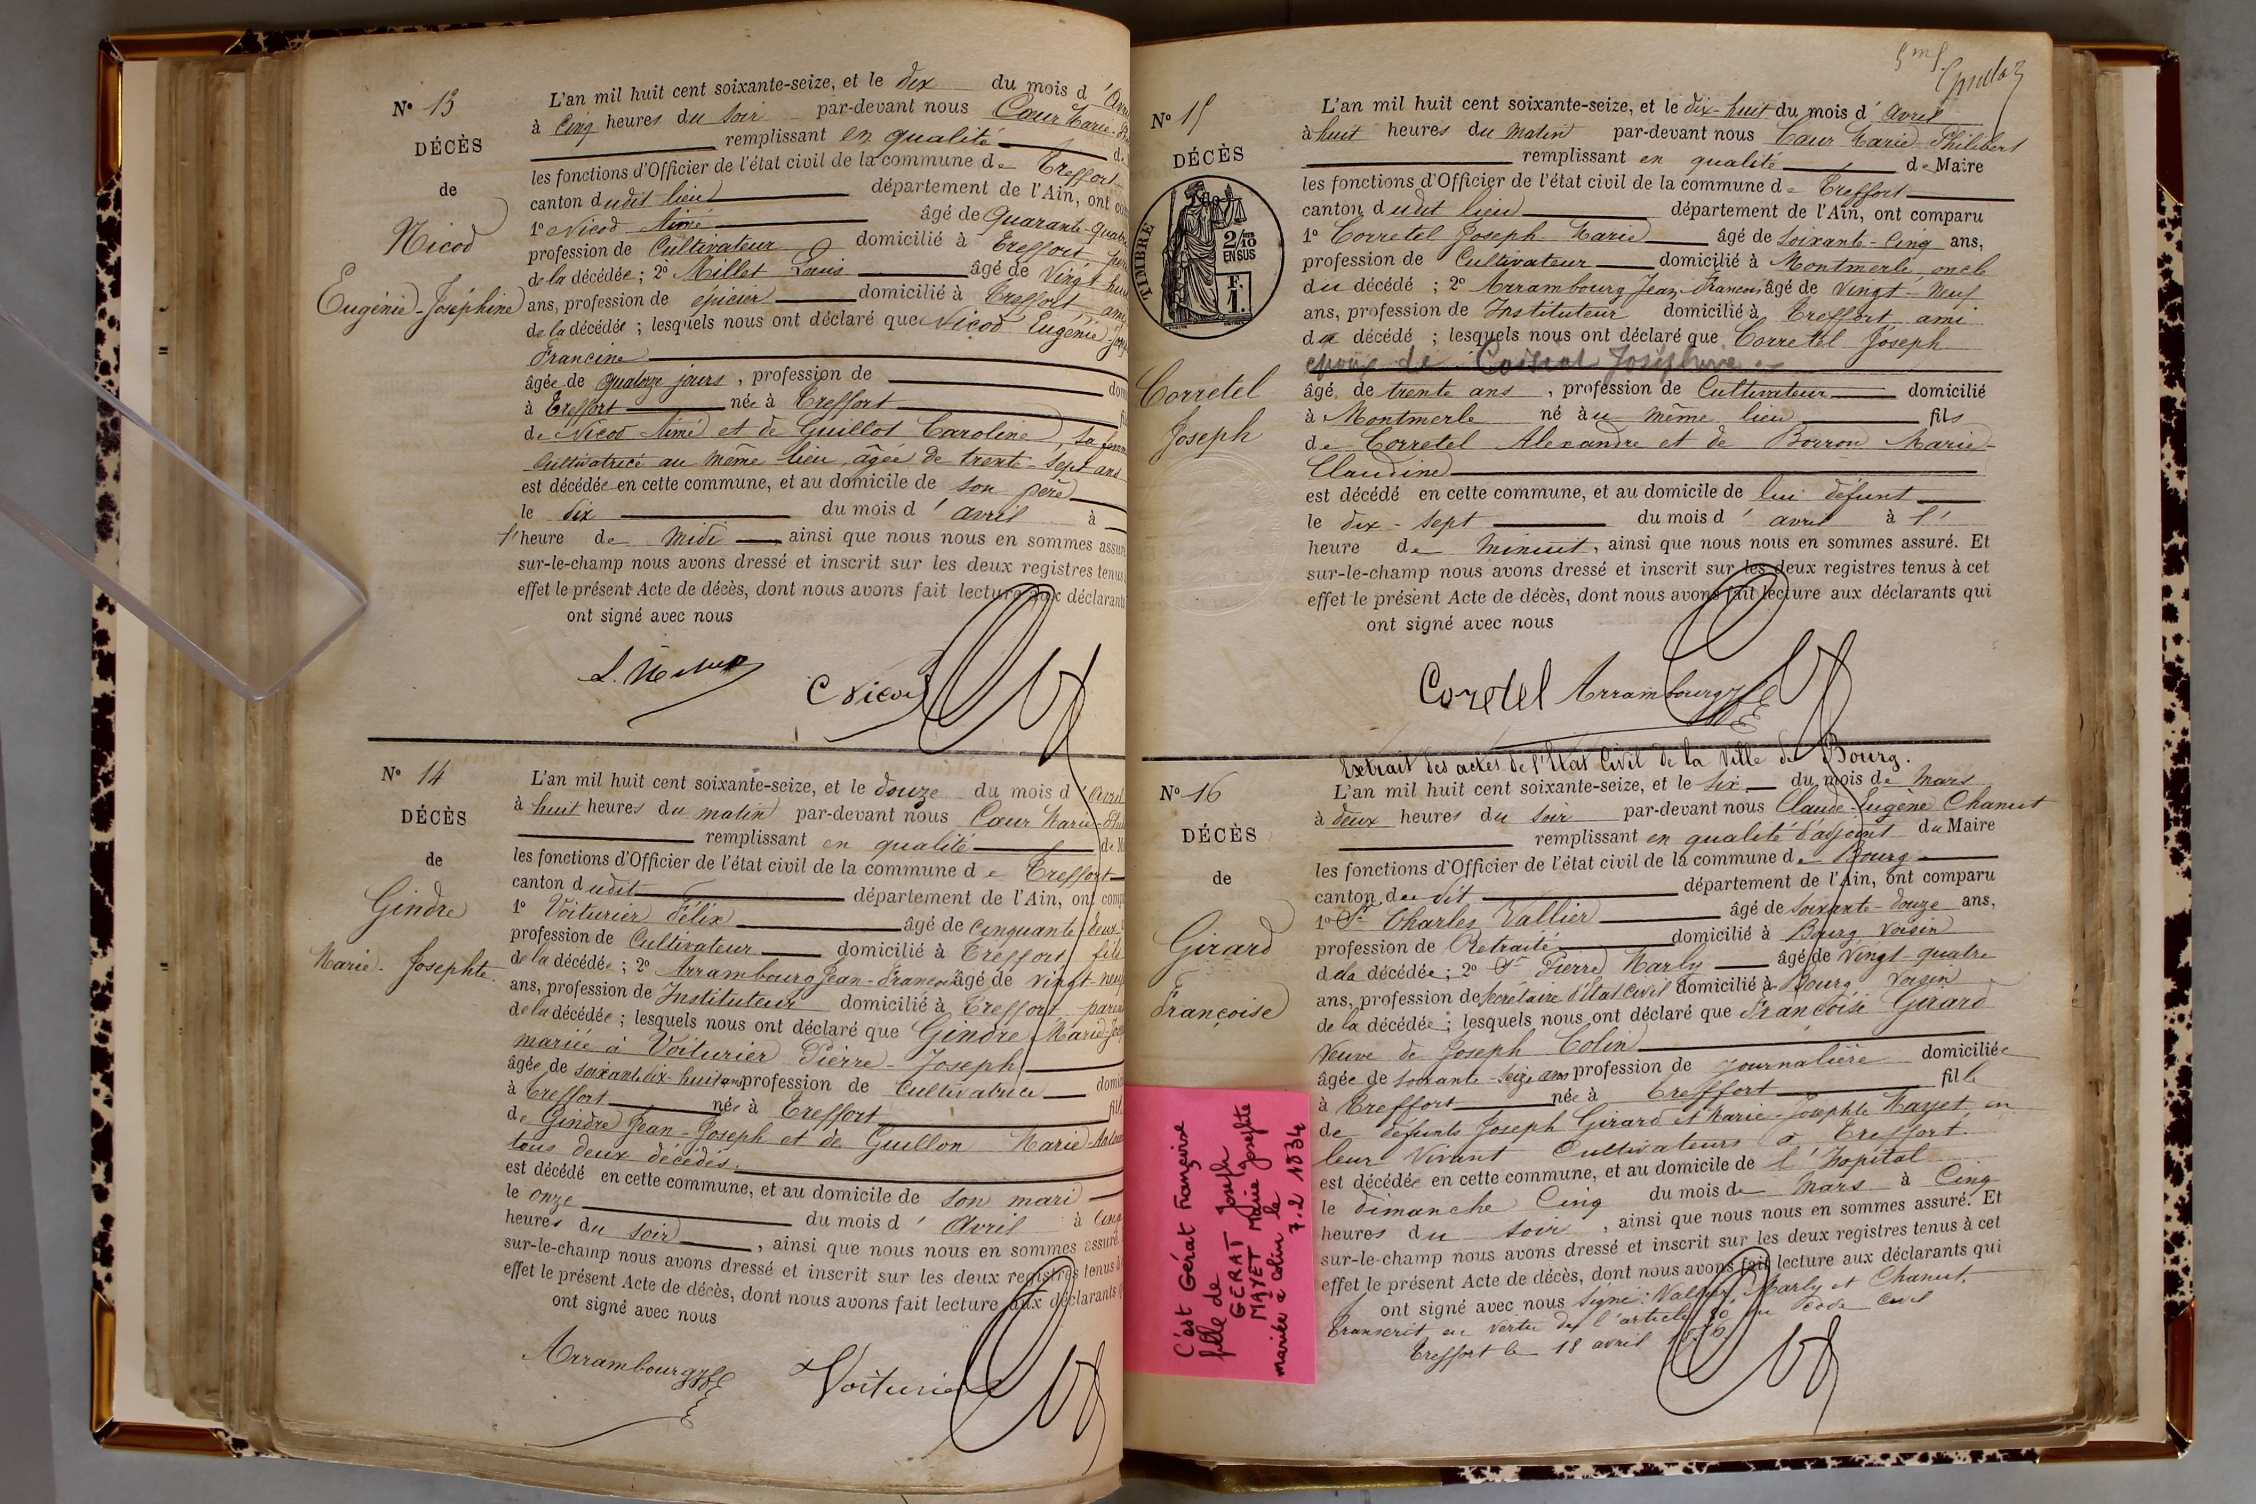 N° 13
DÉCÈS
de
Nicod
Eugénie-Joséphine
L'an mil huit cent soixante-seize, et le dix du mois d'
à cinq heures du soir par-devant nous Cœur Marie-
remplissant en qualité
les fonctions d'Officier de l'état civil de la commune de Treffort
canton dudit lieu département de l'Ain, ont
1° Nicod Aimé âgé de Quarante-quatre
profession de Cultivateur domicilié à Treffort
de la décédée ; 2° Millet Louis âgé de Vingt-
ans, profession de épicier domicilié à Treffort ami
de la décédée ; lesquels nous ont déclaré que Nicod Eugénie
Francine
âgée de quatorze jours, profession de
à Treffort née à Treffort
de Nicod Aimé et de Guillot Caroline, sa
Cultivatrice au même lieu, âgée de trente-sept ans
est décédée en cette commune, et au domicile de son père
le dix du mois d'avril à
l'heure de Midi ainsi que nous nous en sommes
sur-le-champ nous avons dressé et inscrit sur les deux registres tenus
effet le présent Acte de décès, dont nous avons fait lecture aux déclarants
ont signé avec nous
N° 14
DÉCÈS
de
Gindre
Marie-Josephte
L'an mil huit cent soixante-seize, et le douze du mois d'avril
à huit heures du matin par-devant nous Cœur Marie-
remplissant en qualité
les fonctions d'Officier de l'état civil de la commune de Treffort
canton dudit département de l'Ain, ont
1° Voiturier Félix âgé de cinquante-deux
profession de Cultivateur domicilié à Treffort fils
de la décédée ; 2° Arrambourg Jean-François âgé de vingt-neuf
ans, profession de Instituteur domicilié à Treffort
de la décédée ; lesquels nous ont déclaré que Gindre Marie
mariée à Voiturier Pierre-Joseph
âgée de soixante dix-huit ans profession de Cultivatrice
à Treffort née à Treffort
de Gindre Jean-Joseph et de Guillon Marie
tous deux décédés.
est décédé en cette commune, et au domicile de son mari
le onze du mois d'Avril à cinq
heures du soir, ainsi que nous nous en sommes assuré
sur-le-champ nous avons dressé et inscrit sur les deux registres tenus
effet le présent Acte de décès, dont nous avons fait lecture aux déclarants
ont signé avec nous
Arrambourg
Voiturier
N° 15
DÉCÈS
TIMBRE
2/10
EN SUS
F.
1.
Corretel
Joseph
L'an mil huit cent soixante-seize, et le dix-huit du mois d'avril
à huit heures du matin par-devant nous Cœur Marie-Philibert
remplissant en qualité de Maire
les fonctions d'Officier de l'état civil de la commune de Treffort
canton dudit lieu département de l'Ain, ont comparu
1° Corretel Joseph-Marie âgé de soixante-cinq ans,
profession de Cultivateur domicilié à Montmerle, oncle
du décédé ; 2° Arrambourg Jean-François âgé de vingt-neuf
ans, profession de Instituteur domicilié à Treffort ami
du décédé ; lesquels nous ont déclaré que Corretel Joseph
époux de Joséphine
âgé de trente ans, profession de Cultivateur domicilié
à Montmerle né au même lieu fils
de Corretel Alexandre et de Borron Marie-
Claudine
est décédé en cette commune, et au domicile de lui défunt
le dix-sept du mois d'avril à l'
heure de minuit, ainsi que nous nous en sommes assuré. Et
sur-le-champ nous avons dressé et inscrit sur les deux registres tenus à cet
effet le présent Acte de décès, dont nous avons fait lecture aux déclarants qui
ont signé avec nous
Coretel Arrambourg
Extrait des actes de l'État Civil de la Ville de Bourg.
N° 16
DÉCÈS
de
Girard
Françoise
L'an mil huit cent soixante-seize, et le six du mois de mars
à deux heures du soir par-devant nous Claude-Eugène Chanut
remplissant en qualité d'adjoint du Maire
les fonctions d'Officier de l'état civil de la commune de Bourg
canton du dit département de l'Ain, ont comparu
1° Sr Charles Vallier âgé de soixante-douze ans,
profession de Retraité domicilié à Bourg voisin
de la décédée ; 2° Sr Pierre Marly âgé de vingt-quatre
ans, profession de secrétaire d'état civil domicilié à Bourg voisin
de la décédée ; lesquels nous ont déclaré que Françoise Girard
Veuve de Joseph Colin
âgée de soixante-seize ans profession de journalière domiciliée
à Treffort née à Treffort fille
de défunts Joseph Girard et Marie-Josephte Mayet, en
leur vivant Cultivateurs à Treffort.
est décédée en cette commune, et au domicile de l'hôpital
le dimanche Cinq du mois de Mars à Cinq
heures du soir, ainsi que nous nous en sommes assuré. Et
sur-le-champ nous avons dressé et inscrit sur les deux registres tenus à cet
effet le présent Acte de décès, dont nous avons fait lecture aux déclarants qui
ont signé avec nous signé : Vallier, Marly et Chanut.
Transcrit en vertu de l'article 80 du Code Civil
Treffort le 18 avril 1876
C'est Gérat Françoise
fille de
GÉRAT Joseph
MAYET Marie Josephte
mariée à Colin le
7.2 1834